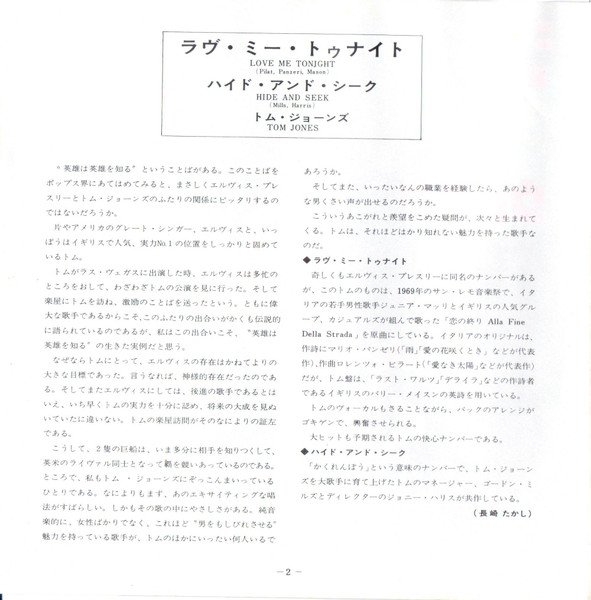 ラヴ・ミー・トゥナイト
LOVE ME TONIGHT
(Pilat, Panzeri, Mason)
ハイド・アンド・シーク
HIDE AND SEEK
(Mills, Harris)
トム・ジョーンズ
TOM JONES
“英雄は英雄を知る”ということばがある。このことばを
ポップス界にあてはめてみると、まさしくエルヴィス・プレ
スリーとトム・ジョーンズのふたりの関係にピッタリするの
ではないだろうか。
片やアメリカのグレート・シンガー、エルヴィスと、いっ
ぽうはイギリスで人気、実力No.1の位置をしっかりと固めて
いるトム。
トムがラス・ヴェガスに出演した時、エルヴィスは多忙の
ところをおして、わざわざトムの公演を見に行った。そして
楽屋にトムを訪ね、激励のことばを送ったという。ともに偉
大な歌手であるからこそ、このふたりの出合いがかくも伝説的
に語られているのであるが、私はこの出合いこそ、“英雄は
英雄を知る”の生きた実例だと思う。
なぜならトムにとって、エルヴィスの存在はかねてよりの
大きな目標であった。言うなれば、神様的存在だったのであ
る。そしてまたエルヴィスにしては、後進の歌手であるとは
いえ、いち早くトムの実力を十分に認め、将来の大成を見ぬ
いていたに違いない。トムの楽屋訪問がそのなによりの証左
である。
こうして、2隻の巨船は、いま多分に相手を知りつくして、
英米のライヴァル同士となって覇を競いあっているのである。
ところで、私もトム・ジョーンズにぞっこんまいっている
ひとりである。なによりもまず、あのエキサイティングな唱
法がすばらしい。しかもその歌の中にやさしさがある。純音
楽的に、女性ばかりでなく、これほど“男をもしびれさせる”
魅力を持っている歌手が、トムのほかにいったい何人いるで
あろうか。
そしてまた、いったいなんの職業を経験したら、あのよう
な男くさい声が出せるのだろうか。
こういうあこがれと羨望をこめた疑問が、次々と生まれて
くる。トムは、それほどはかり知れない魅力を持った歌手な
のだ。
◆ラヴ・ミー・トゥナイト
奇しくもエルヴィス・プレスリーに同名のナンバーがある
が、このトムのものは、1969年のサン・レモ音楽祭で、イタ
リアの若手男性歌手ジュニア・マッリとイギリスの人気グル
ープ、カジュアルズが組んで歌った「恋の終り Alla Fine
Della Strada」を原曲にしている。イタリアのオリジナルは、
作詩にマリオ・パンゼリ(「雨」「愛の花咲くとき」などが代表
作)、作曲ロレンツォ・ピラート(「愛なき太陽」などが代表作)
だが、トム盤は、「ラスト・ワルツ」「デライラ」などの作詩者
であるイギリスのバリー・メイスンの英詩を用いている。
トムのヴォーカルもさることながら、バックのアレンジが
ゴキゲンで、興奮させられる。
大ヒットも予期されるトムの快心ナンバーである。
◆ハイド・アンド・シーク
「かくれんぼう」という意味のナンバーで、トム・ジョーン
ズを大歌手に育て上げたトムのマネージャー、ゴードン・ミ
ルズとディレクターのジョニー・ハリスが共作している。
(長崎 たかし)
－2－